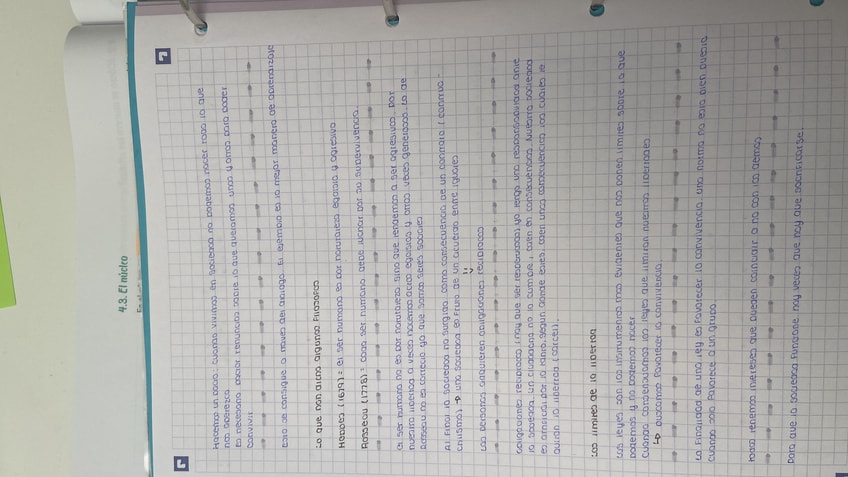 4.3. El núcleo
Hacemos un pacto: cuando vivimos en sociedad no podemos hacer todo lo que
nos apetezca
Es necesario poner renuncias sobre lo que queramos unos y otros para poder
convivir
Esto se consigue a través del diálogo. El ejemplo es la mejor manera de aprendizaje
Lo que han dicho algunos filósofos
Hobbes (1679) = el ser humano es por naturaleza egoísta y agresivo
Rosseau (1778) = todo ser humano debe luchar por su supervivencia.
El ser humano no es por naturaleza sino que tendemos a ser agresivos. Por
nuestra libertad a veces hacemos actos egoístas y otras veces generosos. Lo de
Rosseau no es correcto ya que somos seres sociales
Al final la sociedad ha surgido como consecuencia de un contrato (contrac-
tualismo) → una sociedad es fruto de un acuerdo entre iguales
Las personas adquieren obligaciones recíprocas
Obligaciones recíprocas (hay que ser responsable) yo tengo una responsabilidad ante
la sociedad, un ciudadano no la cumple y caen en consecuencias. Nuestra sociedad
es amplia, por lo tanto, según donde estés, caen unas consecuencias las cuales te
quitan la libertad (cárcel).
Los límites de la libertad
Las leyes son los instrumentos más evidentes que nos ponen límites sobre lo que
podemos y no podemos hacer
Cuando consensuamos las leyes que limitan nuestras libertades
↳ buscamos favorecer la convivencia
La finalidad de una ley es favorecer la convivencia, una norma no está bien puesta
cuando solo favorece a un grupo.
Todos tenemos intereses que pueden coincidir o no con los demás
Para que la sociedad funcione hay veces que hay que sacrificarse.